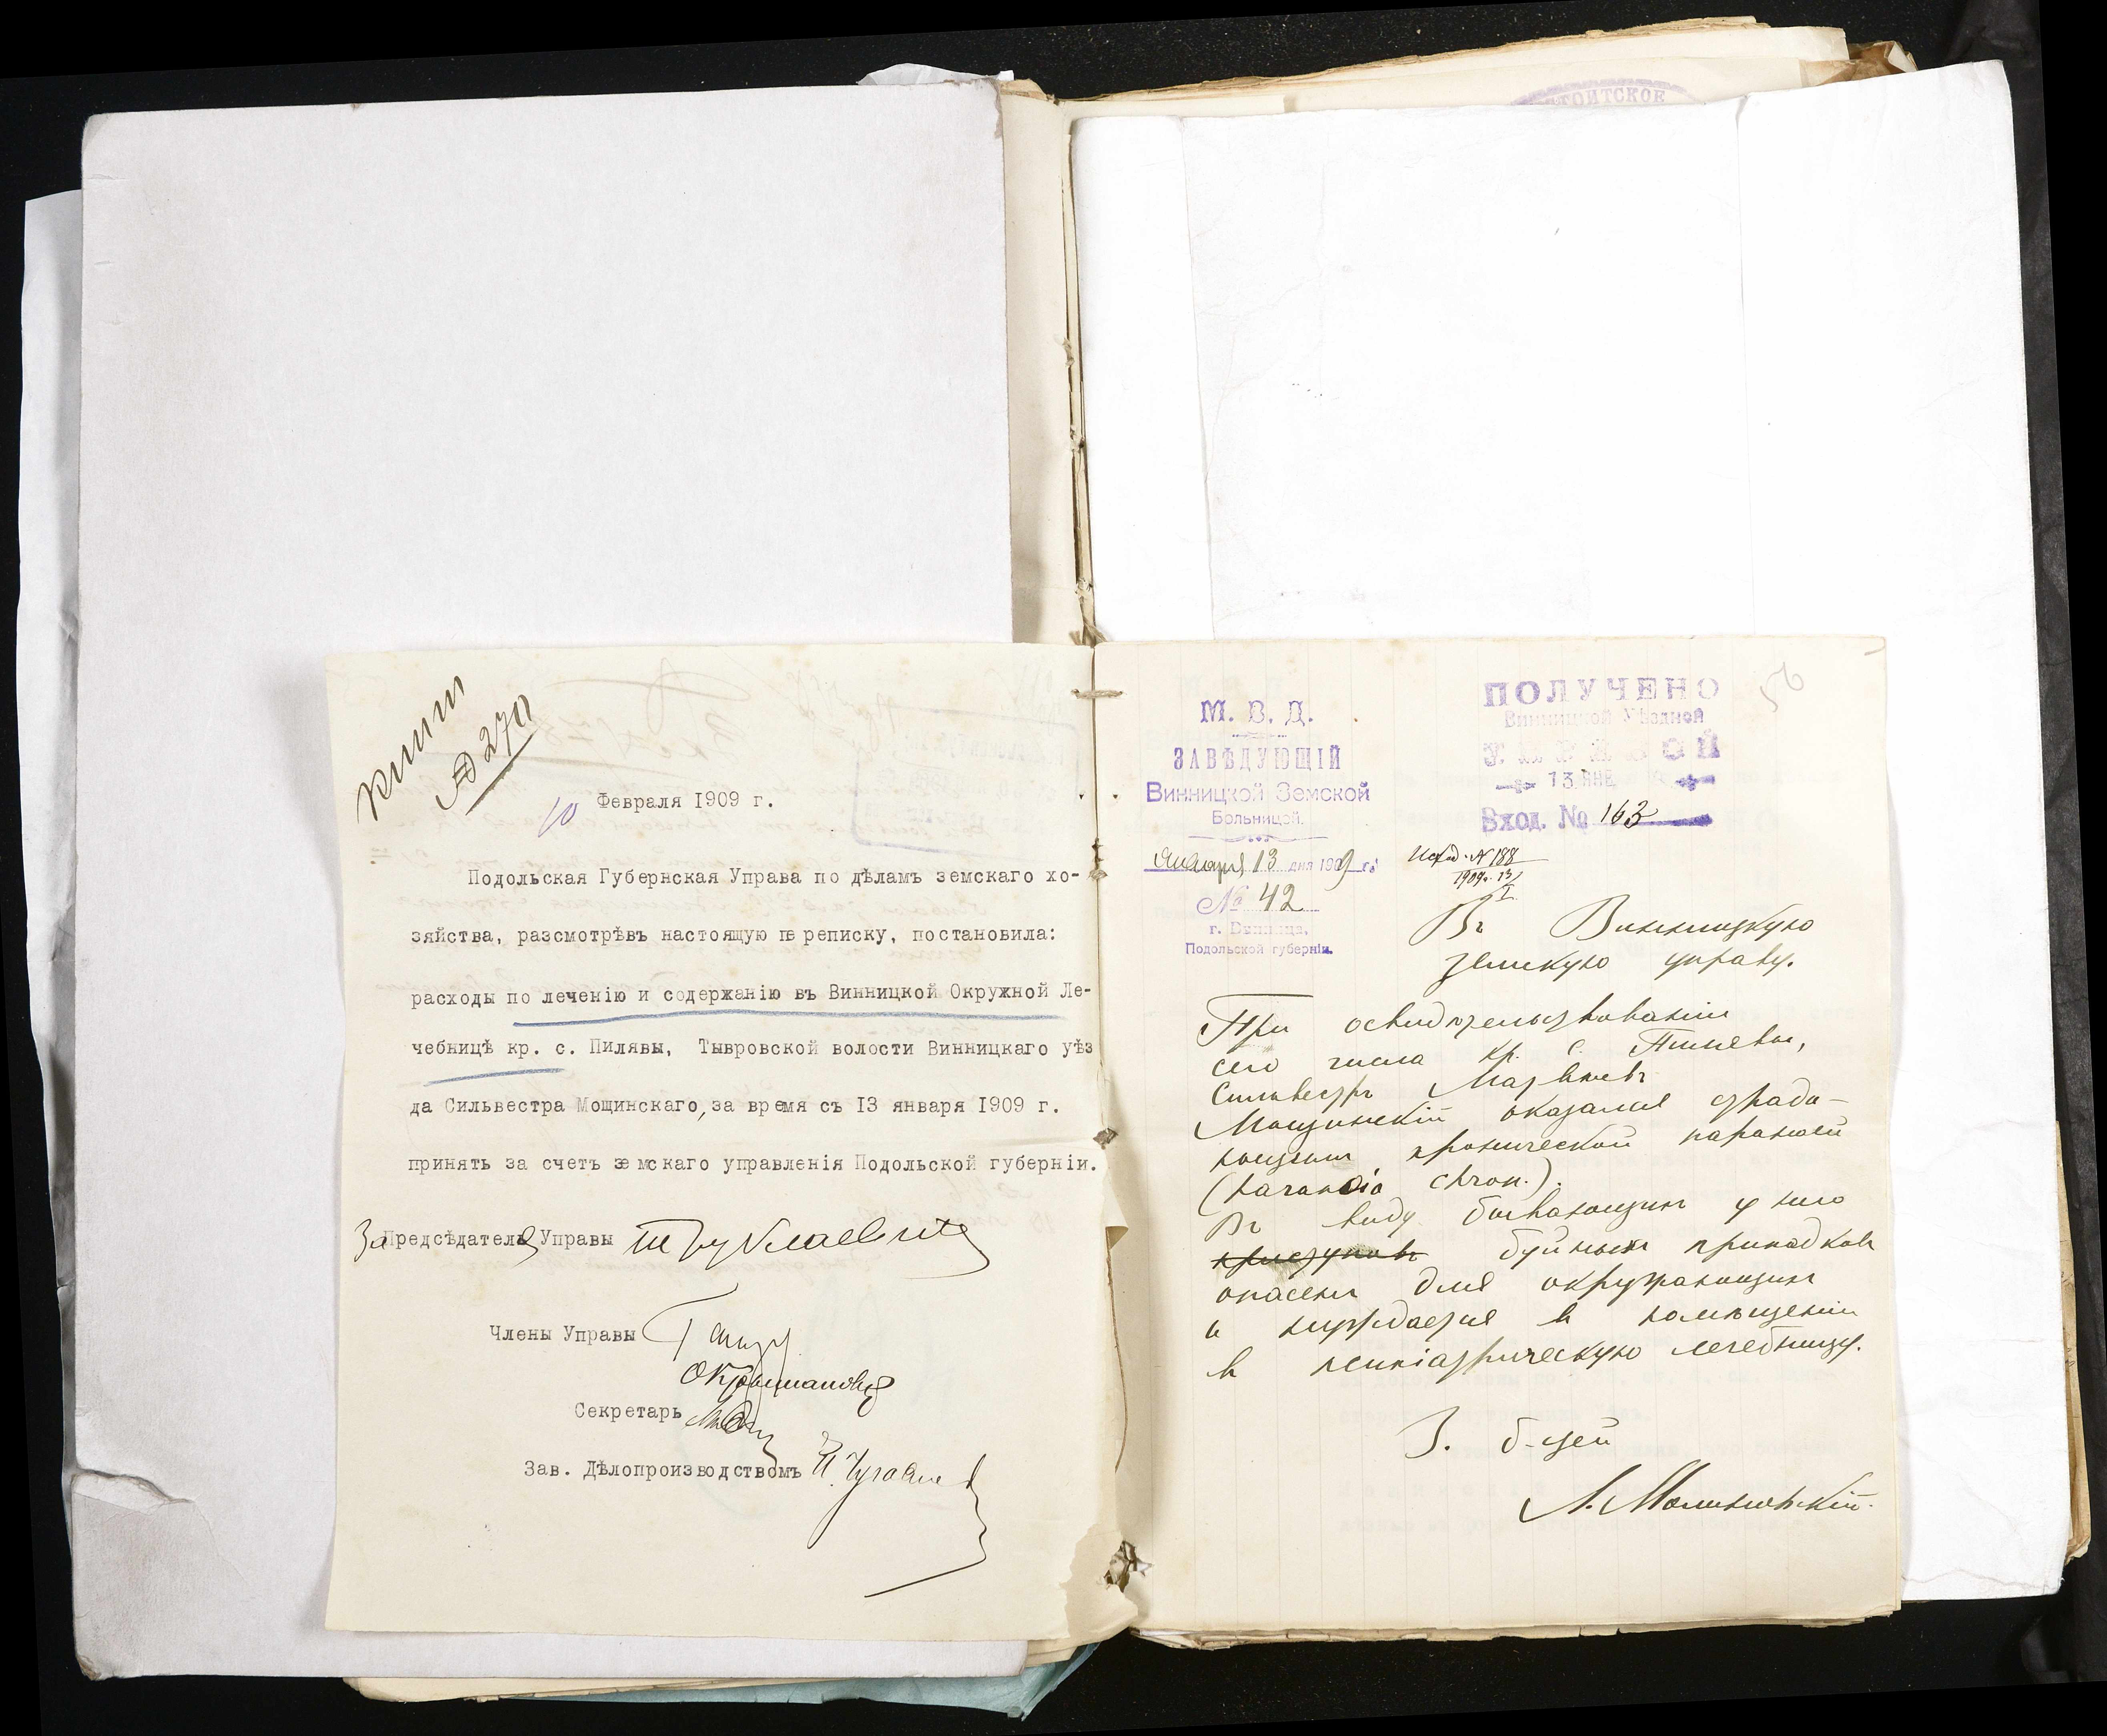 № 270
10 Февраля 1909 г.
Подольская Губернская Управа по дѣламъ земскаго хо-
зяйства, разсмотрѣвъ настоящую пе реписку, постановила:
расходы по леченію и содержанію въ Винницкой Окружной Ле-
чебницѣ кр. с. Пилявы, Тывровской волости Винницкаго уѣз
да Сильвестра Мощинскаго, за время съ 13 января 1909 г.
принять за счетъ зе мскаго управленія Подольской губерніи.
За Предсѣдателя Управы
Члены Управы
Секретарь
Зав. Дѣлопроизводствомъ
ТОИТСКОЕ
56
М. В. Д.
ЗАВѢДУЮЩІЙ
Винницкой Земской
Больницей.
Января 13 дня 1909 г.
№ 42
г. Винница,
Подольской губерніи.
ПОЛУЧЕНО
Винницкой Уѣздной
УПРАВОЙ
13 ЯНВ
Вход. № 163
Исход. № 188
1909 г. 13/I
Въ Винницкую
земскую управу.
При освидѣтельствованіи
сего числа кр. с. Пилявы,
Сильвестръ
Мощинскій оказался страда-
ющимъ хронической параноей
(paranoia chron.).
Въ виду бывающихъ у него
приступовъ буйныхъ припадковъ
опасенъ для окружающихъ
и нуждается въ помѣщеніи
въ психіатрическую лечебницу.
З. б-цей
Л. Малиновскій.